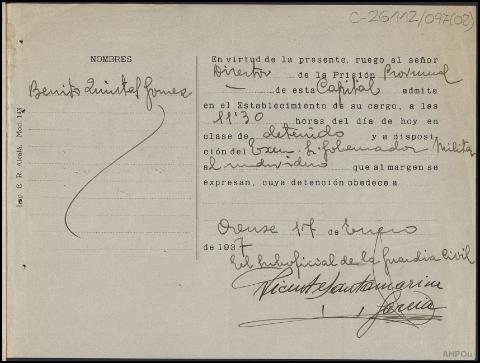 C-26112/097(02)
NOMBRES
Benito Quintas Gomez
Imp. E. R. Alcalá. Mod. 143
En virtud de la presente, ruego al señor
Director de la Prisión Provincial
de esta Capital admita
en el Establecimiento de su cargo, a las
11'30 horas del día de hoy en
clase de detenido y a disposi
ción del Excmo. Sr. Gobernador Militar
al individuo que al margen se
expresan, cuya detención obedece a
Orense 17 de Enero
de 1937
El Suboficial de la Guardia Civil
Vicente Santamarina
García
AHPOu